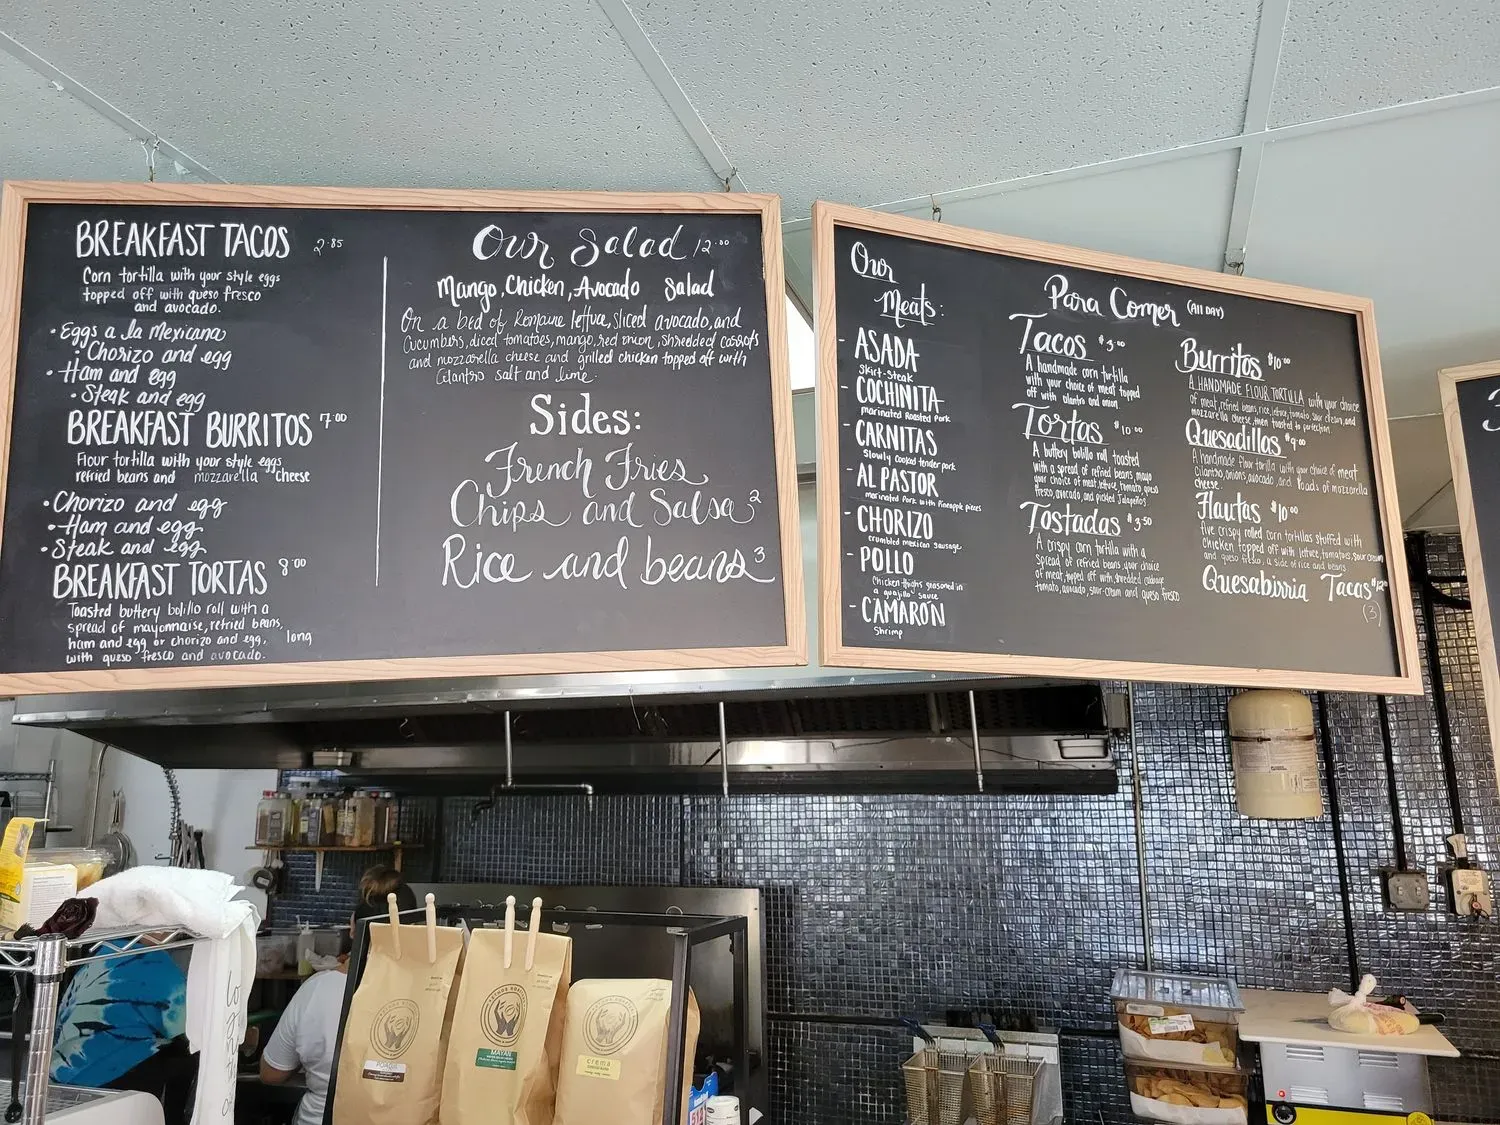 BREAKFAST TACOS 2.85
Corn tortilla with your style eggs
topped off with queso fresco
and avocado.
• Eggs a la Mexicana
• Chorizo and egg
• Ham and egg
• Steak and egg
BREAKFAST BURRITOS 7.00
Flour tortilla with your style eggs
refried beans and mozzarella cheese
• Chorizo and egg
• Ham and egg
• Steak and egg
BREAKFAST TORTAS 8.00
Toasted buttery bolillo roll with a
spread of mayonnaise, refried beans,
ham and egg or chorizo and egg, long
with queso fresco and avocado.
Our Salad 12.00
Mango, Chicken, Avocado Salad
On a bed of Romaine lettuce, sliced avocado, and
cucumbers, diced tomatoes, mango, red onion, shredded carrots
and mozzarella cheese and grilled chicken topped off with
Cilantro salt and lime.
Sides:
French Fries
Chips and Salsa 2
Rice and beans 3
Our
Meats:
- ASADA
Skirt-Steak
- COCHINITA
marinated Roasted Pork
- CARNITAS
Slowly cooked tender pork
- AL PASTOR
marinated Pork with Pineapple pieces
- CHORIZO
crumbled mexican sausage
- POLLO
Chicken thighs seasoned in
a guajillo sauce
- CAMARÓN
Shrimp
Para Comer (All DAY)
Tacos $3.00
A handmade corn tortilla
with your choice of meat topped
off with cilantro and onion
Tortas $10.00
A buttery bolillo roll toasted
with a spread of refried beans, mayo
your choice of meat, lettuce, tomato, queso
fresco, avocado, and pickled Jalapeños
Tostadas $3.50
A crispy corn tortilla with a
spread of refried beans, your choice
of meat, topped off with shredded cabbage
tomato, avocado, sour-cream and queso fresco
Burritos $10.00
A HANDMADE FLOUR TORTILLA with your choice
of meat, refried beans, rice, lettuce, tomato, sour cream, and
mozzarella cheese, then toasted to perfection
Quesadillas $9.00
A handmade flour tortilla with your choice of meat
cilantro, onions, avocado, and loads of mozzarella
cheese.
Flautas $10.00
five crispy rolled corn tortillas stuffed with
chicken topped off with lettuce, tomatoes, sour cream
and queso fresco, a side of rice and beans
Quesabirria Tacos
(3)
MAYAN
crema